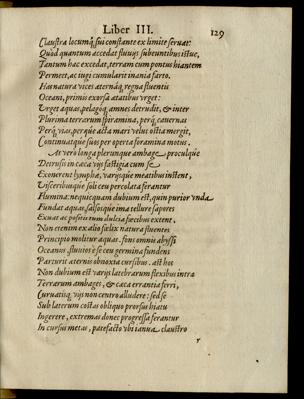 Liber III. 129
Claustra locumq́; sui constante ex limite seruat:
Quòd quantum accedat fluuijs subeuntibus istuc,
Tantum hac excedat, terram cum pontus hiantem
Permeet, ac iugi cumularit inania farto.
Hac natura vices aternáq; regna fluentis
Oceani, primis exorsa atatibus vrget:
Vrget aquas, pelagoq́; amnes detrudit, & inter
Plurima terrarum spiramina, perq́; cauernas
Perq́; vias, perque acta mari velut ostia mergit,
Continuatque suos per operta foramina motus.
At vero longa plerunque ambage, proculque
Detrusi in caca vijs fastigia cum se
Exonerent lympha, varijsque meatibus instent,
Visceribusque soli ceu percolata ferantur
Flumina: nequicquam dubium est, quin purior vnda
Fundat aquas, salsosque ima tellure sapores
Exuat ac positis tum dulcia facibus extent.
Non etenim ex alio fœlix natura fluentes
Principio molitur aquas: fons omnis abyssi
Oceanus, fluuios è se ceu germina fundens
Parturit aternis obnoxia cursibus. ast hos
Non dubium est varijs latebrarum flexibus intra
Terrarum ambages, & caca errantia ferri,
Curuatisq; vijs non centro alludere: sed se
Sub laterum costas obliquo prorsus hiatu
Ingerere, extremas donec progressa ferantur
In cursus metas, patefacto vbi ianua claustro
r